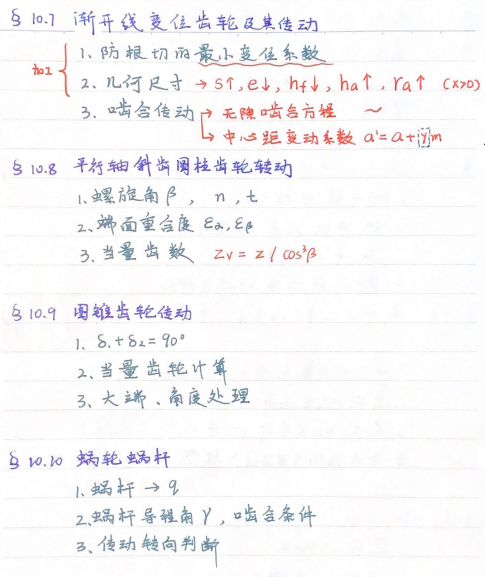 § 10.7 渐开线变位齿轮及其传动
1、防根切的最小变位系数
加工 { 2、几何尺寸 → s↑, e↓, hf↓, ha↑, ra↑ (x>0)
3、啮合传动 → 无隙啮合方程 ~
↳ 中心距变动系数 a'=a+ym
§ 10.8 平行轴斜齿圆柱齿轮转动
1、螺旋角β, n, t
2、端面重合度 εα, εβ
3、当量齿数 Zv = z / cos³β
§ 10.9 圆锥齿轮传动
1. δ1+δ2=90°
2、当量齿轮计算
3、大端、角度处理
§ 10.10 蜗轮蜗杆
1、蜗杆 → q
2、蜗杆导程角γ, 啮合条件
3、传动转向判断